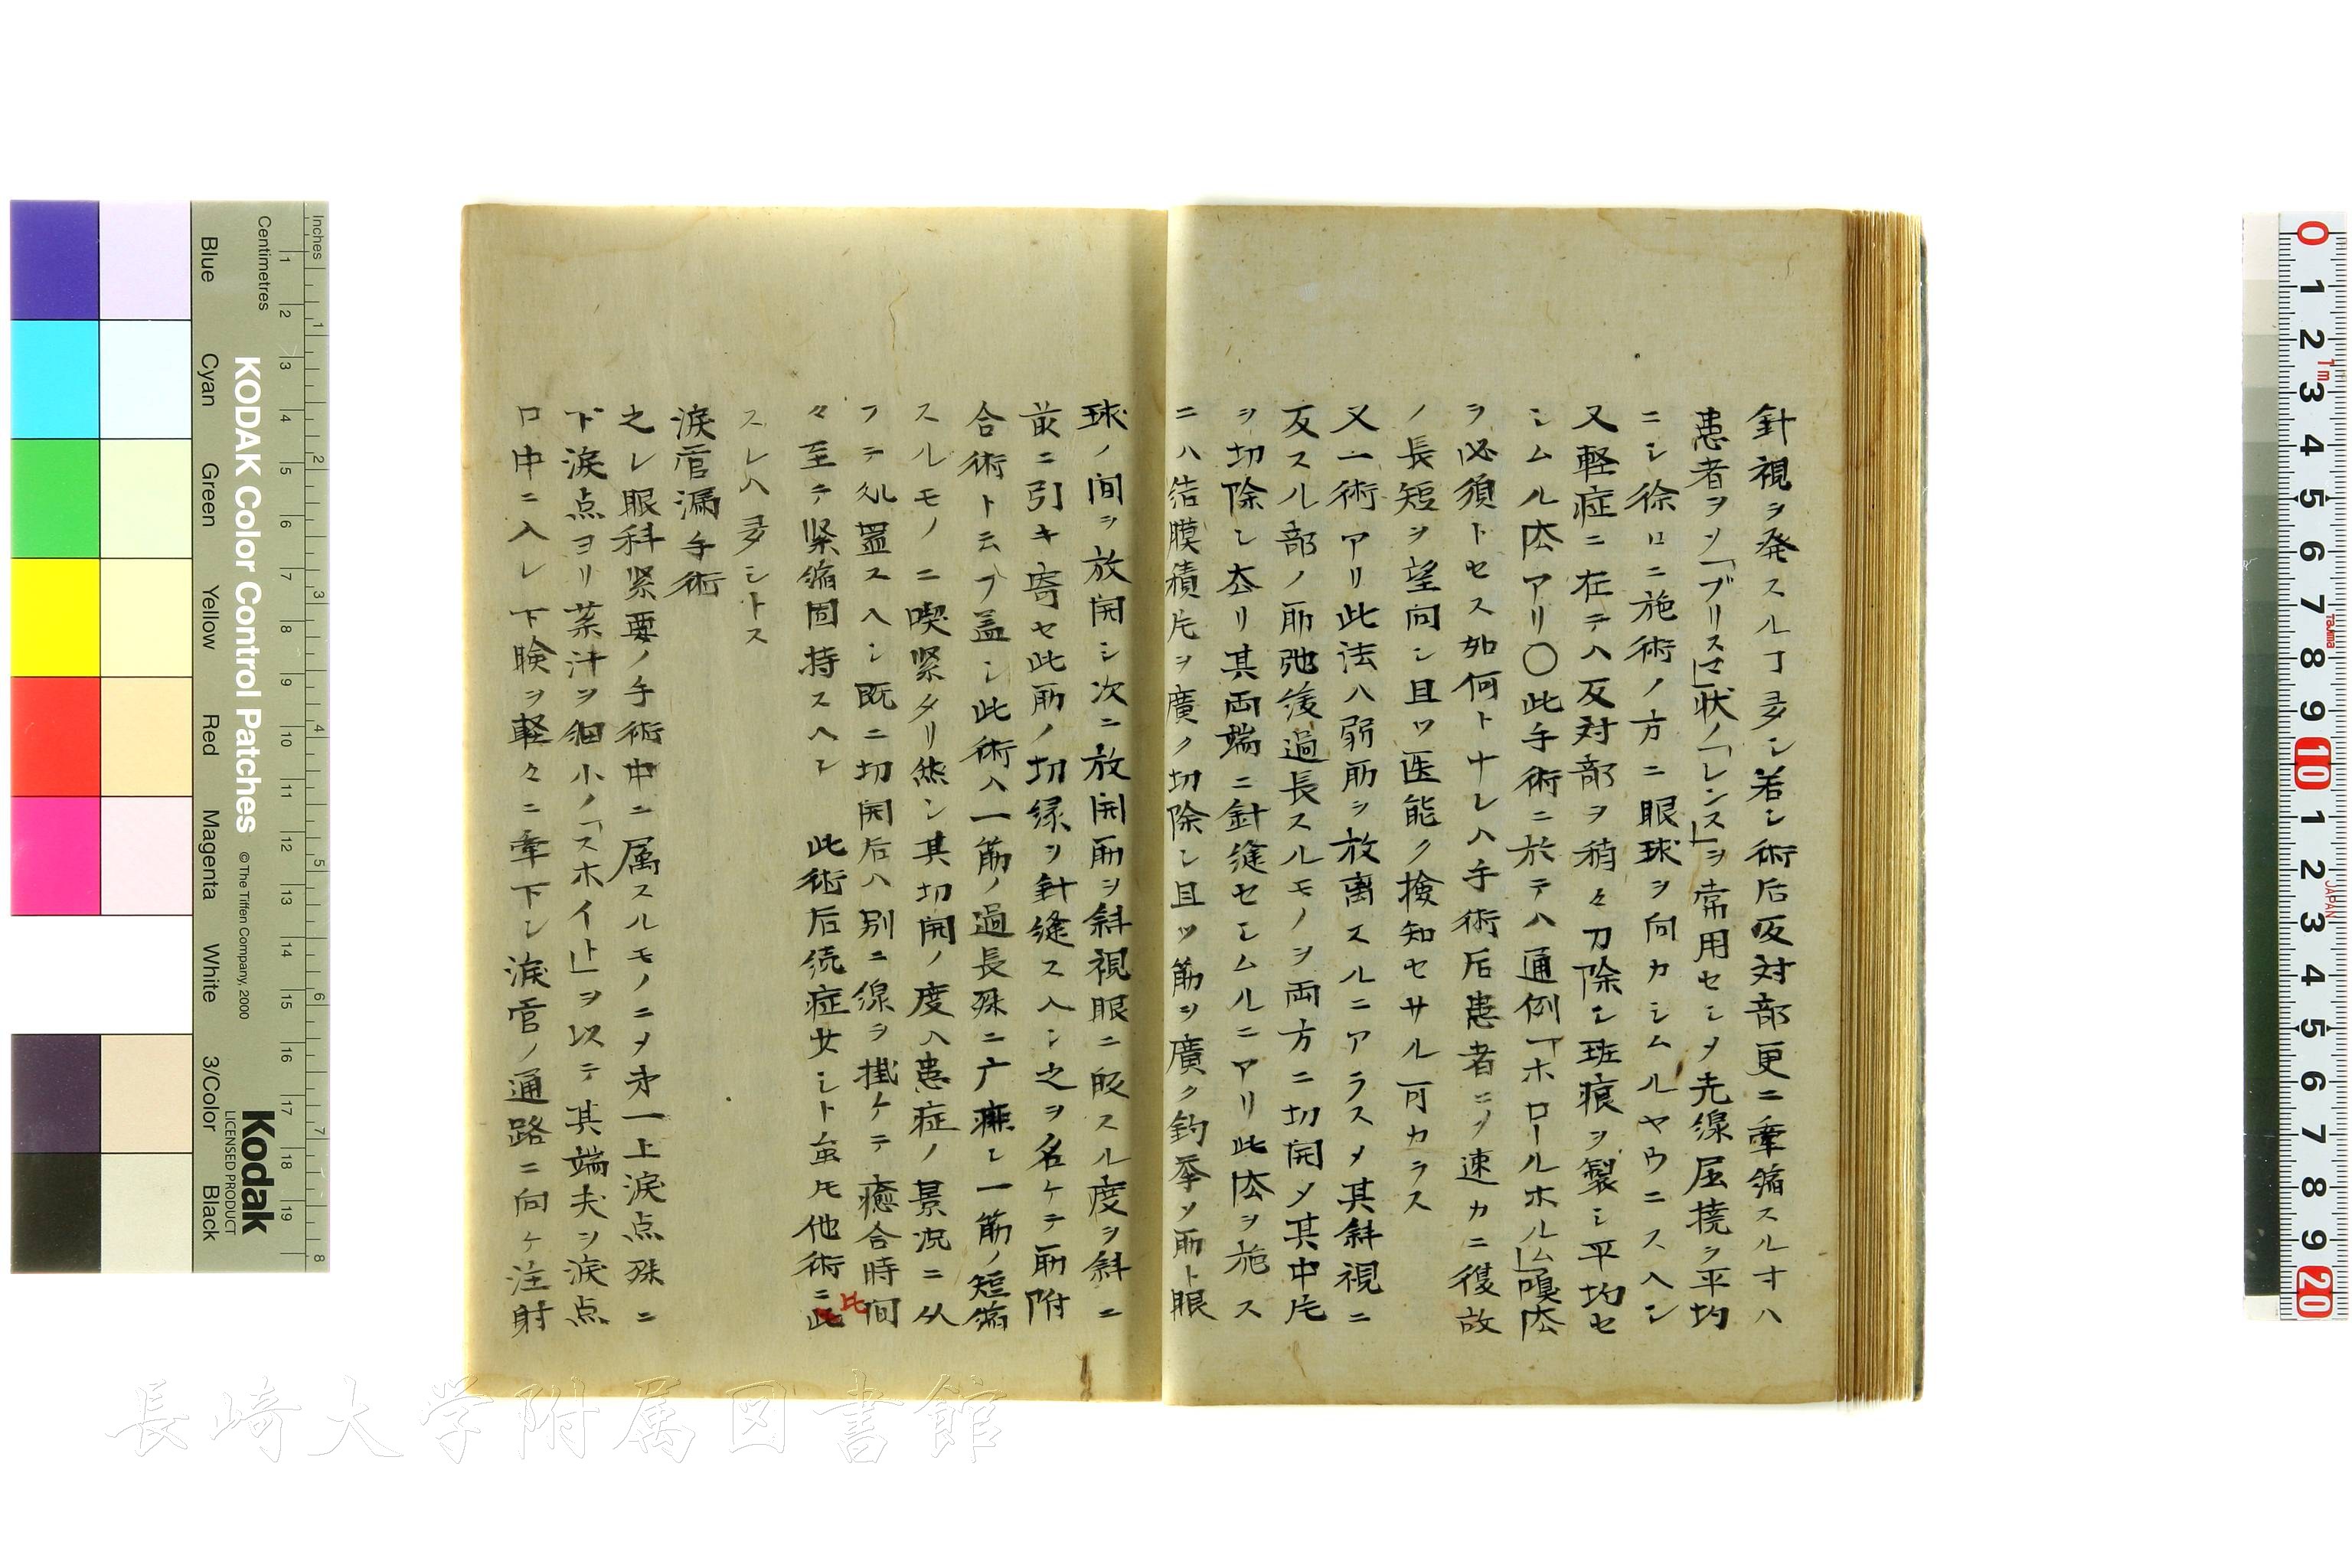 針視ヲ発スルヿ多シ若シ術后反対部更ニ牽縮スルヿハ
患者ヲノ「ブリスマ」状ノ「レンス」ヲ常用セシメ光線屈撓ヲ平均
ニシ徐ロニ施術ノ方ニ眼球ヲ向カシムルヤウニスヘシ
又軽症ニ在テハ反対部ヲ稍々刀除シ斑痕ヲ製シ平均セ
シムル法アリ〇此手術ニ於テハ通例「ホロールホルム」嗅法
ヲ必須トセス如何トナレハ手術后患者ニノ速カニ復故
ノ長短ヲ望向シ且ツ医能ク撿知セサル可カラス
又一術アリ此法ハ弱筋ヲ放离スルニアラスメ其斜視ニ
反スル部ノ筋弛緩過長スルモノヲ両方ニ切開メ其中片
ヲ切除シ去リ其両端ニ針縫セシムルニアリ此法ヲ施ス
ニハ結膜積片ヲ廣ク切除シ且ツ筋ヲ廣ク釣挙メ筋ト眼
球ノ間ヲ放開シ次ニ放開筋ヲ斜視眼ニ皈スル度ヲ斜ニ
前ニ引キ寄セ此筋ノ切縁ヲ針縫スヘシ之ヲ名ケテ筋附
合術ト云フ盖シ此術ハ一筋ノ過長殊ニ广痺シ一筋ノ短縮
スルモノニ喫緊タリ然シ其切開ノ度ハ患症ノ景况ニ从
フテ処置スヘシ既ニ切開后ハ別ニ線ヲ掛ケテ癒合時間
々至テ緊縮固持スヘシ 此術后続症少シト虽𪜈他術ニ此
比
スレハ多シトス
涙管漏手術
之レ眼科緊要ノ手術中ニ属スルモノニメ才一上涙点殊ニ
下涙点ヨリ茶汁ヲ細小ノ「スホイト」ヲ以テ其端夫ヲ涙点
口中ニ入レ下瞼ヲ軽々ニ牽下シ涙管ノ通路ニ向ケ注射
KODAK Color Control Patches
© The Tiffen Company, 2000
Kodak
LICENSED PRODUCT
Inches
Centimetres
Blue
Cyan
Green
Yellow
Red
Magenta
White
3/Color
Black
長崎大学附属図書館